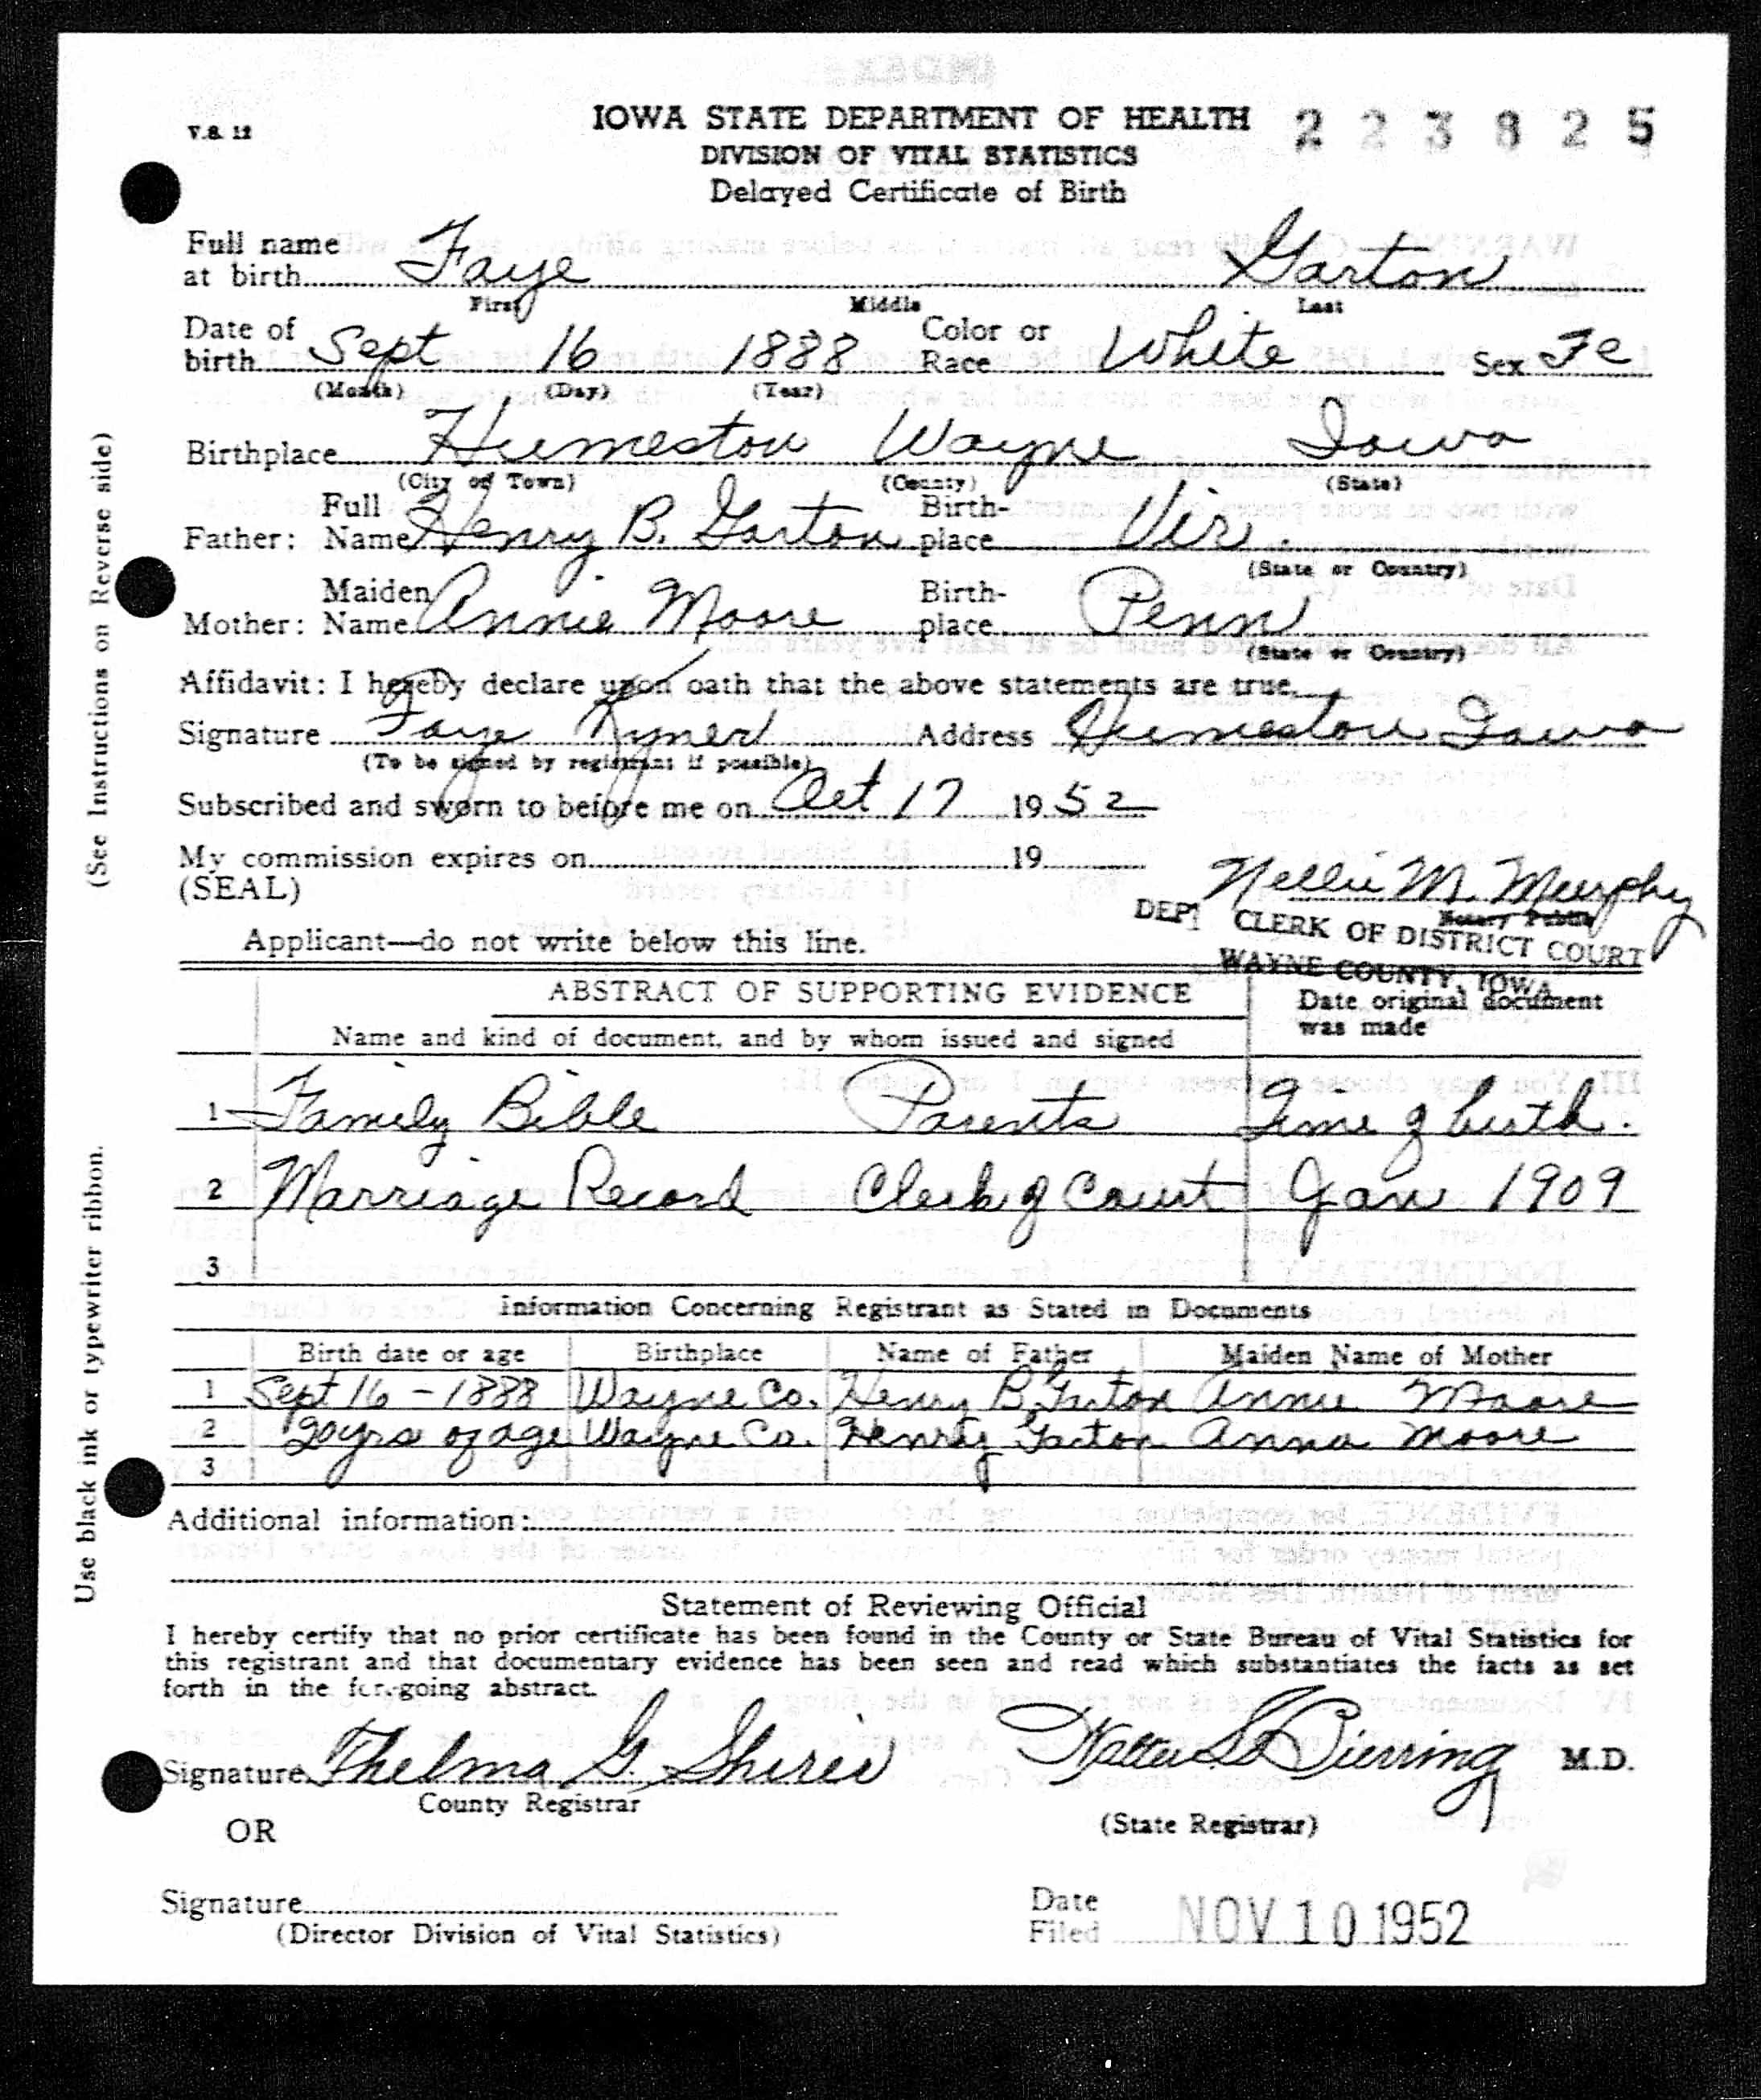 V.S. 12
IOWA STATE DEPARTMENT OF HEALTH 223825
DIVISION OF VITAL STATISTICS
Delayed Certificate of Birth
Full name
at birth Faye Garton
First Middle Last
Date of birth Sept 16 1888 Color or Race White Sex Fe
(Month) (Day) (Year)
Birthplace Humeston Wayne Iowa
(City or Town) (County) (State)
Father: Full Name Henry B. Garton Birth-place Vir.
(State or Country)
Mother: Maiden Name Annie Moore Birth-place Penn
(State or Country)
Affidavit: I hereby declare upon oath that the above statements are true.
Signature Faye Address Humeston Iowa
(To be signed by registrant if possible)
Subscribed and sworn to before me on Oct 17 1952
My commission expires on 19
(SEAL) Nellie M. Murphy
Notary Public
DEPT CLERK OF DISTRICT COURT
WAYNE COUNTY, IOWA
Applicant—do not write below this line.
ABSTRACT OF SUPPORTING EVIDENCE
Name and kind of document, and by whom issued and signed
Date original document was made
1 Family Bible Parents Time of birth.
2 Marriage Record Clerk of Court Jan 1909
3
Information Concerning Registrant as Stated in Documents
Birth date or age Birthplace Name of Father Maiden Name of Mother
1 Sept 16 - 1888 Wayne Co. Henry B. Garton Annie Moore
2 20 yrs of age Wayne Co. Henry Garton Anna Moore
3
Additional information:
Statement of Reviewing Official
I hereby certify that no prior certificate has been found in the County or State Bureau of Vital Statistics for
this registrant and that documentary evidence has been seen and read which substantiates the facts as set
forth in the for-going abstract.
Signature Thelma G. Shirer Walter L. Bierring M.D.
County Registrar
(State Registrar)
OR
Signature
(Director Division of Vital Statistics)
Date Filed NOV 10 1952
(See Instructions on Reverse side)
Use black ink or typewriter ribbon.